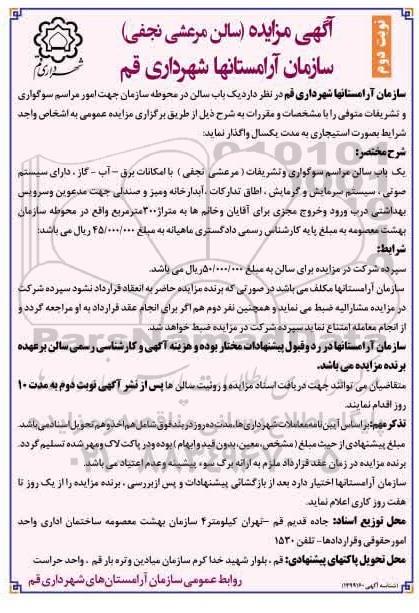 نوبت دوم
آگهی مزایده (سالن مرعشی نجفی)
سازمان آرامستانها شهرداری قم
شهرداری قم
سازمان آرامستانها شهرداری قم در نظر دارد یک باب سالن در محوطه سازمان جهت امور مراسم سوگواری
و تشریفات متوفی را با مشخصات و مقررات به شرح ذیل از طریق برگزاری مزایده عمومی به اشخاص واجد
شرایط بصورت استیجاری به مدت یکسال واگذار نماید:
شرح مختصر:
یک باب سالن مراسم سوگواری و تشریفات ( مرعشی نجفی ) با امکانات برق – آب – گاز ، دارای سیستم
صوتی ، سیستم سرمایش و گرمایش ، اطاق تدارکات ، آبدارخانه ومیز و صندلی جهت مدعوین وسرویس
بهداشتی درب ورود وخروج مجزی برای آقایان وخانم ها به متراژ ۳۰۰مترمربع واقع در محوطه سازمان
بهشت معصومه به مبلغ پایه کارشناس رسمی دادگستری ماهیانه به مبلغ ۴۵/۰۰۰/۰۰۰ ریال می باشد:
شرایط:
سپرده شرکت در مزایده برای سالن به مبلغ ۵۰/۰۰۰/۰۰۰ریال می باشد.
سازمان آرامستانها مکلف می باشد در صورتی که برنده مزایده حاضر به انعقاد قرارداد نشود سپرده شرکت
در مزایده مشارالیه ضبط می نماید و همچنین نفر دوم هم اگر برای انجام عقد قرارداد به او مراجعه گردد و
از انجام معامله امتناع نماید سپرده شرکت در مزایده ضبط خواهد شد.
سازمان آرامستانها در رد وقبول پیشنهادات مختار بوده و هزینه آگهی و کارشناسی رسمی سالن برعهده
برنده مزایده می باشد.
متقاضیان می توانند جهت دریافت اسناد مزایده و روئیت سالن ها پس از نشر آگهی نوبت دوم به مدت ۱۰
روز اقدام نمایند.
تذکر مهم: براساس آیین نامه معاملات شهرداری ها، مدت ده روز در بند فوق شامل هم اخذ وهم تحویل اسناد می باشد.
مبلغ پیشنهادی از حیث مبلغ (مشخص، معین، بدون قید وابهام ) بوده و در پاکت لاک ومهر شده تسلیم گردد.
برنده مزایده در زمان عقد قرارداد ملزم به ارائه برگ سوء پیشینه وعدم اعتیاد می باشد.
سازمان آرامستانها اختیار دارد بعد از بازگشائی پیشنهادات و پس ازبررسی ، برنده مزایده را از یک روز تا
هفت روز کاری اعلام نماید.
محل توزیع اسناد: جاده قدیم قم –تهران کیلومتر۴ سازمان بهشت معصومه ساختمان اداری واحد
امورحقوقی وقراردادها– تلفن ۱۵۳۰
محل تحویل پاکتهای پیشنهادی: قم ، بلوار شهید خدا کرم سازمان میادین وتره بار قم . واحد حراست
روابط عمومی سازمان آرامستان‌های شهرداری قم
(شناسه آگهی ۱۴۹۹۱۶۰)